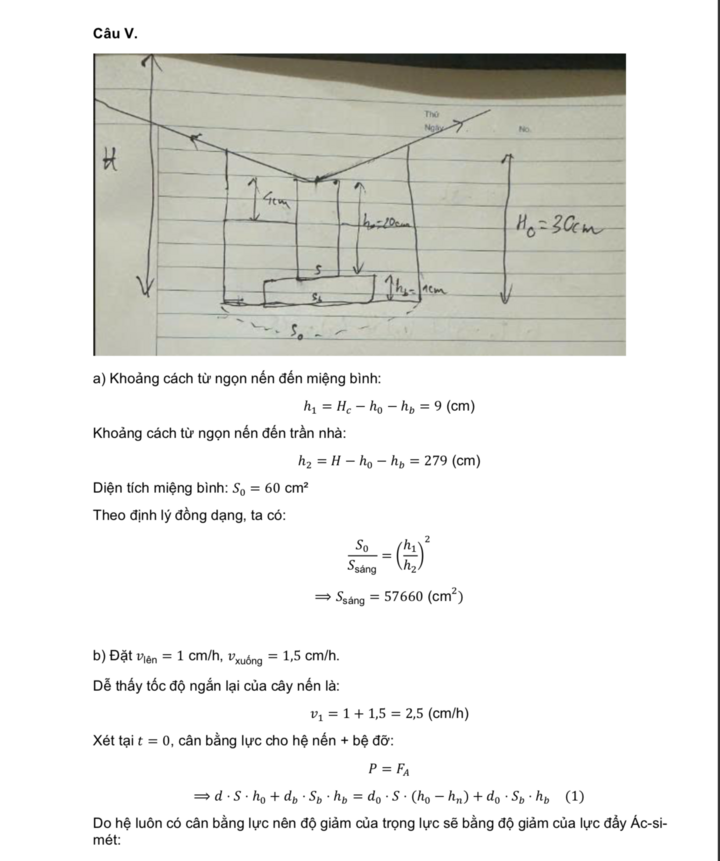 Câu V.
Thứ
Ngày
No.
H
4cm
h₀=20cm
H₀=30cm
S
S_b
h_b=1cm
S₀
a) Khoảng cách từ ngọn nến đến miệng bình:
h₁ = H_c − h₀ − h_b = 9 (cm)
Khoảng cách từ ngọn nến đến trần nhà:
h₂ = H − h₀ − h_b = 279 (cm)
Diện tích miệng bình: S₀ = 60 cm²
Theo định lý đồng dạng, ta có:
S₀/S_sáng = (h₁/h₂)²
⟹ S_sáng = 57660 (cm²)
b) Đặt v_lên = 1 cm/h, v_xuống = 1,5 cm/h.
Dễ thấy tốc độ ngắn lại của cây nến là:
v₁ = 1 + 1,5 = 2,5 (cm/h)
Xét tại t = 0, cân bằng lực cho hệ nến + bệ đỡ:
P = F_A
⟹ d · S · h₀ + d_b · S_b · h_b = d₀ · S · (h₀ − h_n) + d₀ · S_b · h_b (1)
Do hệ luôn có cân bằng lực nên độ giảm của trọng lực sẽ bằng độ giảm của lực đẩy Ác-si-
mét: